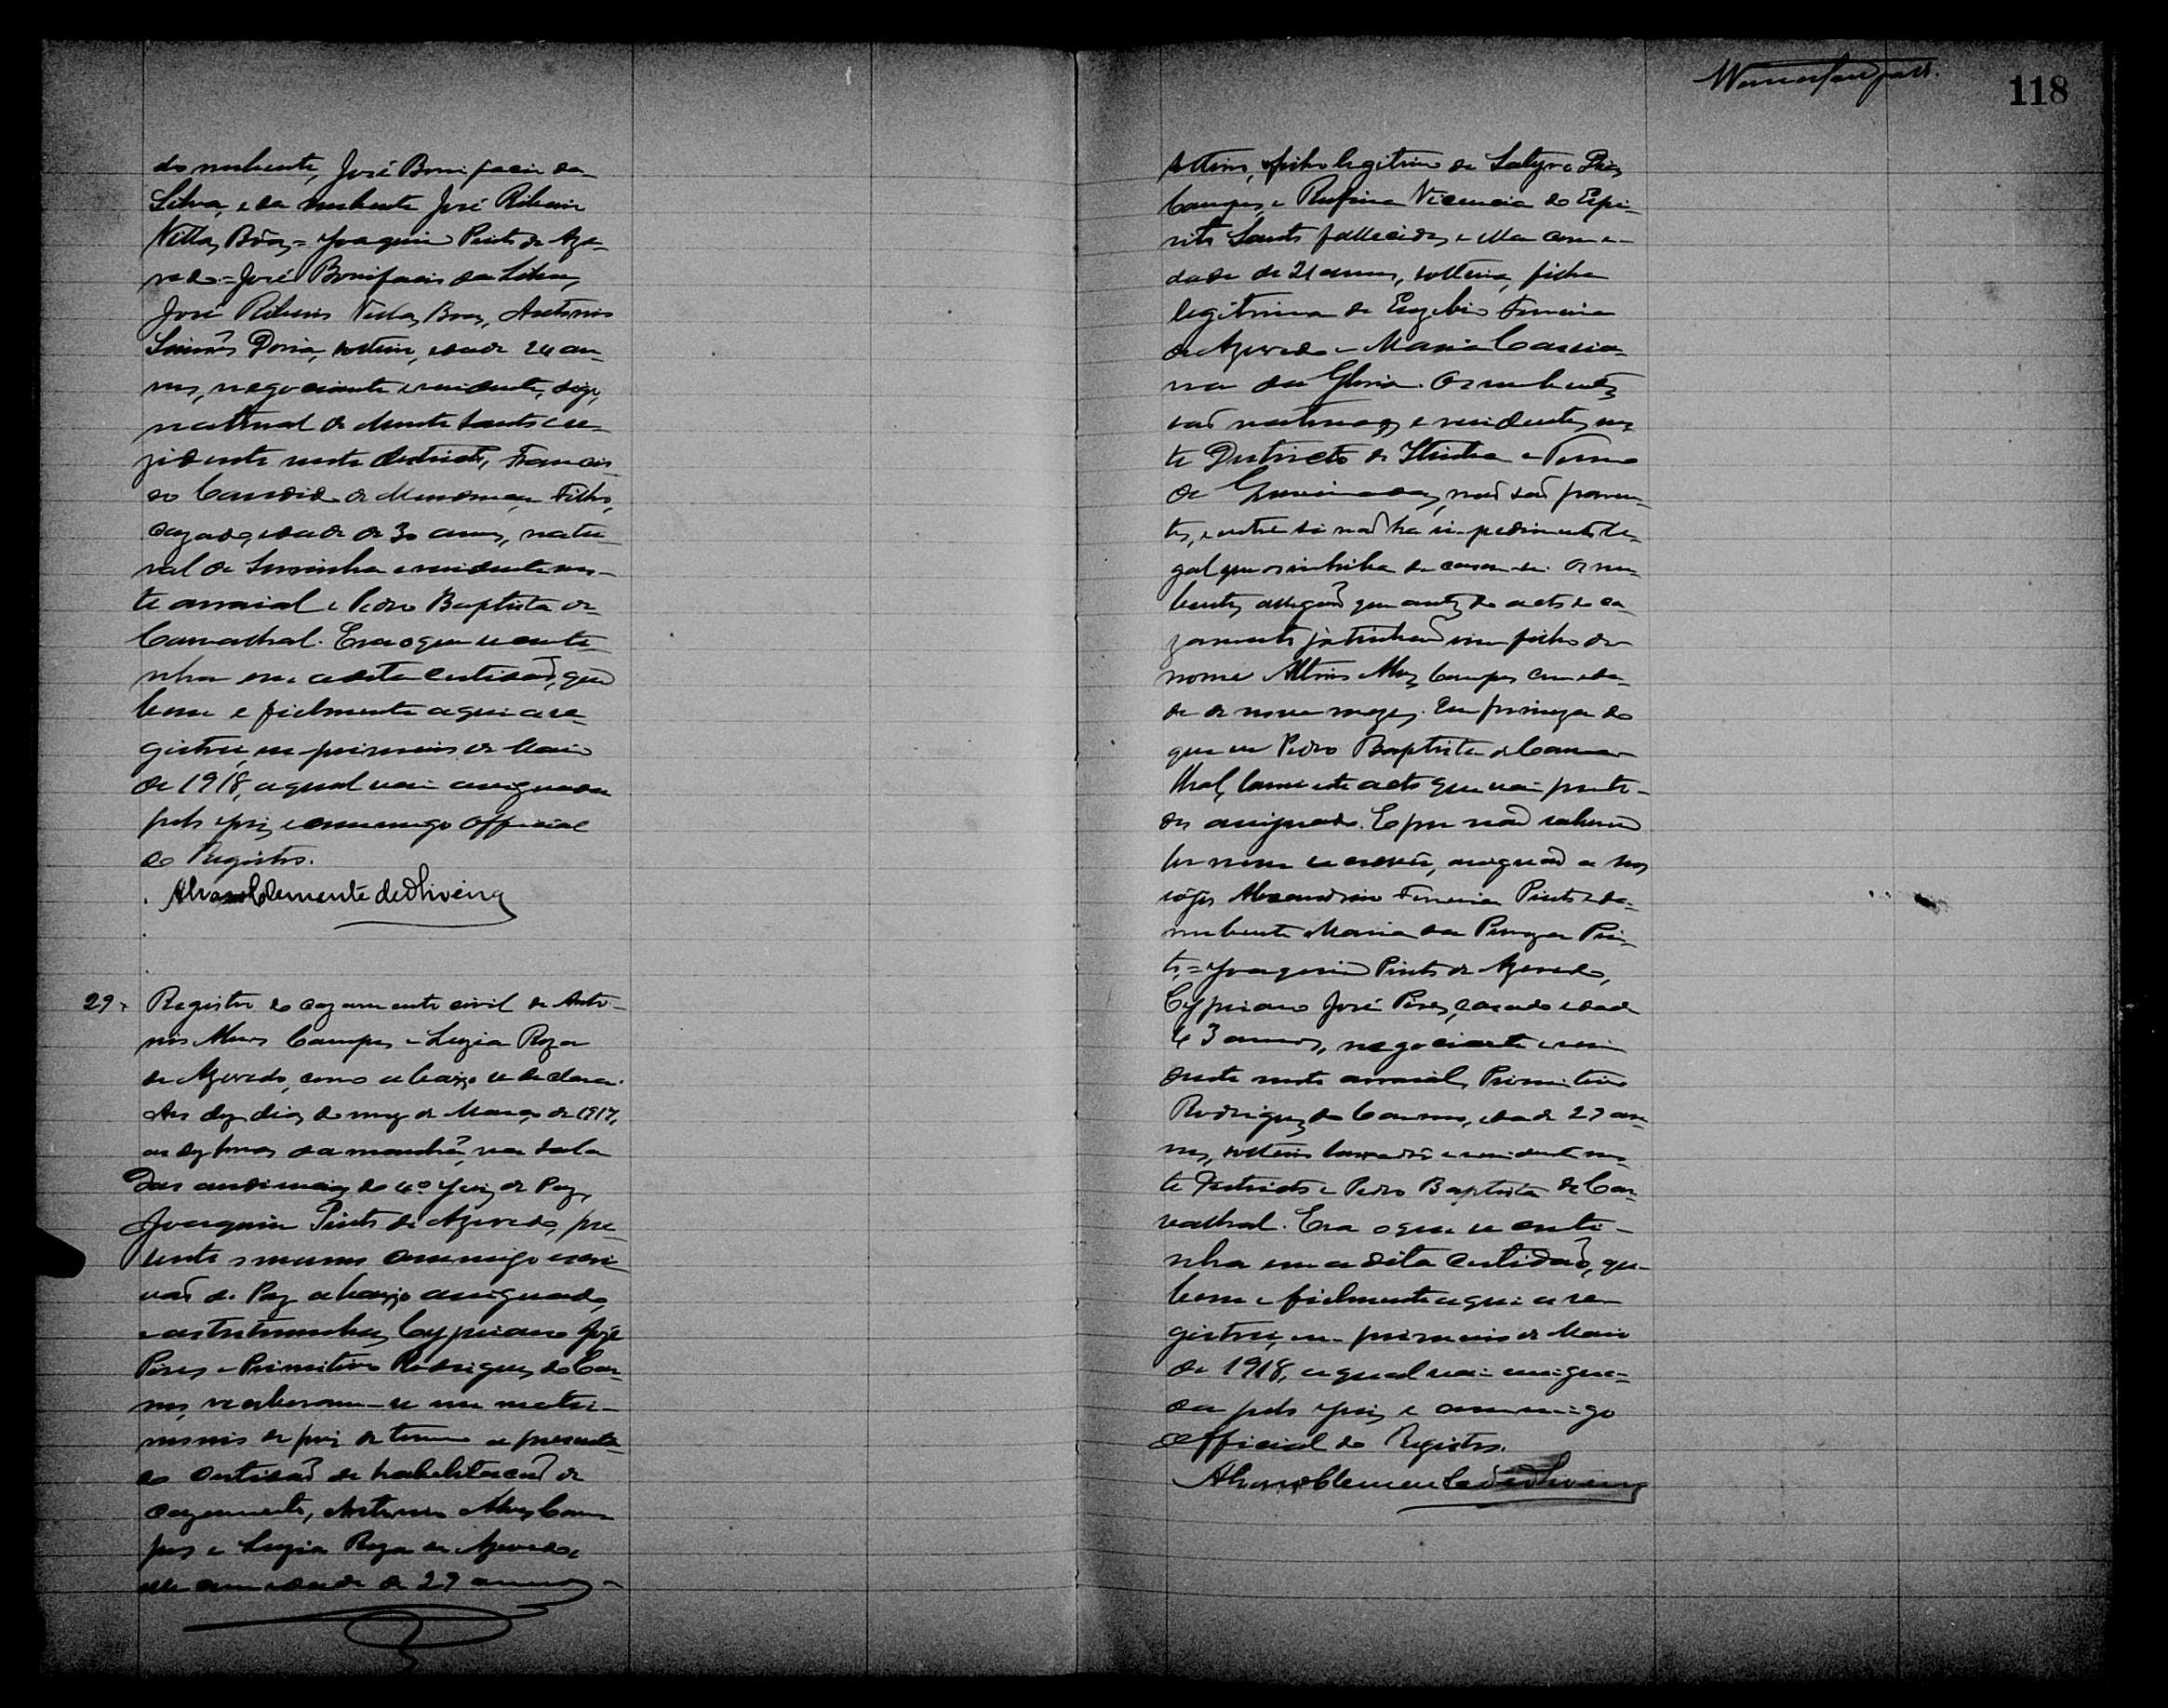 118
do nubente, José Bonifacio da
Silva, e da nubente José Ribeiro
Villas Bôas = Joaquim Pinto de Aze-
vedo = José Bonifacio da Silva,
José Ribeiro Villas Boas, Antonio
Simões Doria, solteiro, idade 24 an-
nos, negociante e residente, digo,
natural de Monte Santo e re-
zidente neste districto, Francis-
co Candido de Mendonça Filho,
cazado, idade de 30 annos, natu-
ral de Serrinha e residente nes-
te arraial e Pedro Baptista de
Carvalhal. Era o que se conti-
nha em a dita certidão, que
bem e fielmente aqui a re-
gistrei, em primeiro de Maio
de 1918, a qual vai assignada
pelo Juiz e commigo Official
do Registro.
Alvaro Clemente de Oliveira
29
Registro do cazamento civil de Anto-
nio Alves Campos e Luzia Roza
de Azevedo, como abaixo se declara.
Aos dez dias do mez de Março de 1917,
as dez horas da manhã, na sala
das audiencias do 4º Juiz de Paz,
Joaquim Pinto de Azevedo, pre-
sente o mesmo commigo escri-
vão de Paz abaixo assignado,
e as testemunhas Cypriano José
Pires e Primitivo Rodrigues do Car-
mo, receberam-se em matri-
monio depois de terem apresenta-
do certidão de habilitação de
cazamento, Antonio Alves Cam-
pos e Luzia Roza de Azevedo,
elle com idade de 27 annos
solteiro, filho legitimo de Satyro
Campos e Rufina Vicencia do Espi-
rito Santo fallecidos, e ella com i-
dade de 21 annos, solteira, filha
legitima de Euzebio Ferreira
de Azevedo e Maria Cassia-
na da Gloria. Os nubentes
são naturaes e residentes nes-
te Districto de e Termo
de Queimadas, não são paren-
tes, e entre si não ha impedimento le-
gal que os inhiba de casar-se. Os nu-
bentes allegão que antes do acto do ca-
zamento já tinhão um filho de
nome Alves Campos com ida-
de de nove mezes. Em firmeza do
que eu Pedro Baptista de Carva-
lhal, lavrei este acto que vai por to-
dos assignado. E por não saberem
ler nem escrever, assignão a seus
rogos Alexandrino Ferreira Pinto e da
nubente Maria da Pureza Pin-
to = Joaquim Pinto de Azevedo,
Cypriano José Pires, casado idade
43 annos, negociante e resi-
dente neste arraial, Primitivo
Rodrigues do Carmo, idade 27 an-
nos, solteiro lavrador e residente nes-
te Districto e Pedro Baptista de Car-
valhal. Era o que se conti-
nha em a dita certidão, que
bem e fielmente aqui a re-
gistrei, em primeiro de Maio
de 1918, a qual vai assigna-
da pelo Juiz e commigo
Official do Registro.
Alvaro Clemente de Oliveira